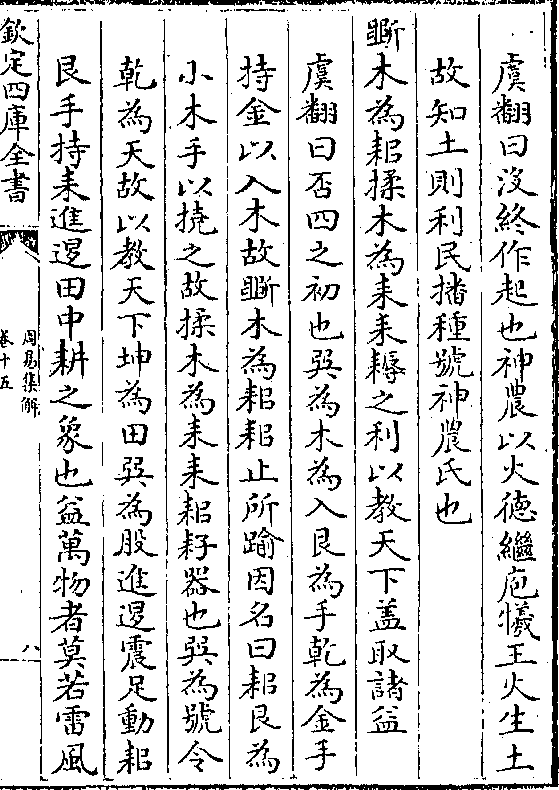 虞翻曰没終作起也神農以火德繼庖犧王火生土
故知土則利民播種號神農氏也
斵木為耜揉木為耒耒耨之利以教天下蓋取諸益
虞翻曰否四之初也巽為木為入艮為手乾為金手
持金以入木故斵木為耜耜止所踰因名曰耜艮為
小木手以撓之故揉木為耒耒耜耔器也巽為號令
乾為天故以教天下坤為田巽為股進退震足動耜
艮手持耒進退田中耕之象也益萬物者莫若雷風
欽定四庫全書
周易集解
卷十五
八